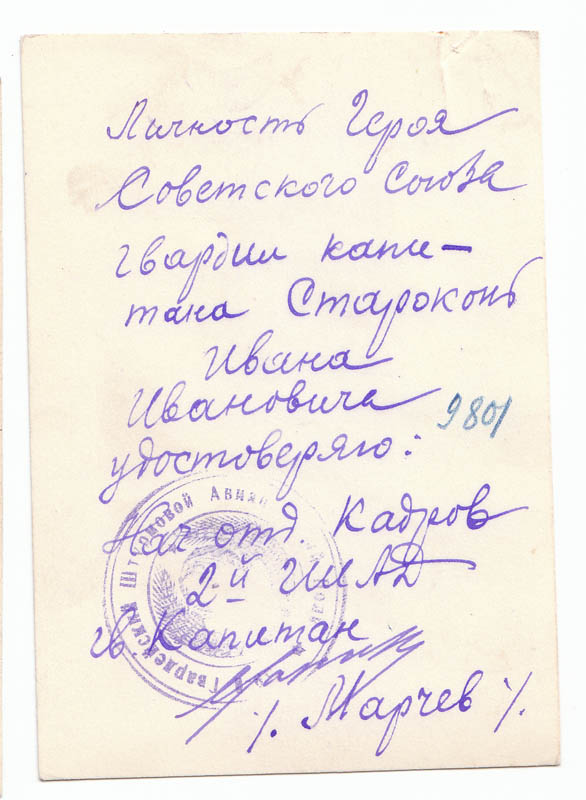 Личность Героя
Советского Союза
гвардии капи-
тана Староконь
Ивана
Ивановича
9801
удостоверяю:
Нач отд. Кадров
2-й ГШАД
гв Капитан
/. Марчев /.
Гвардейский Штурмовой Авиа